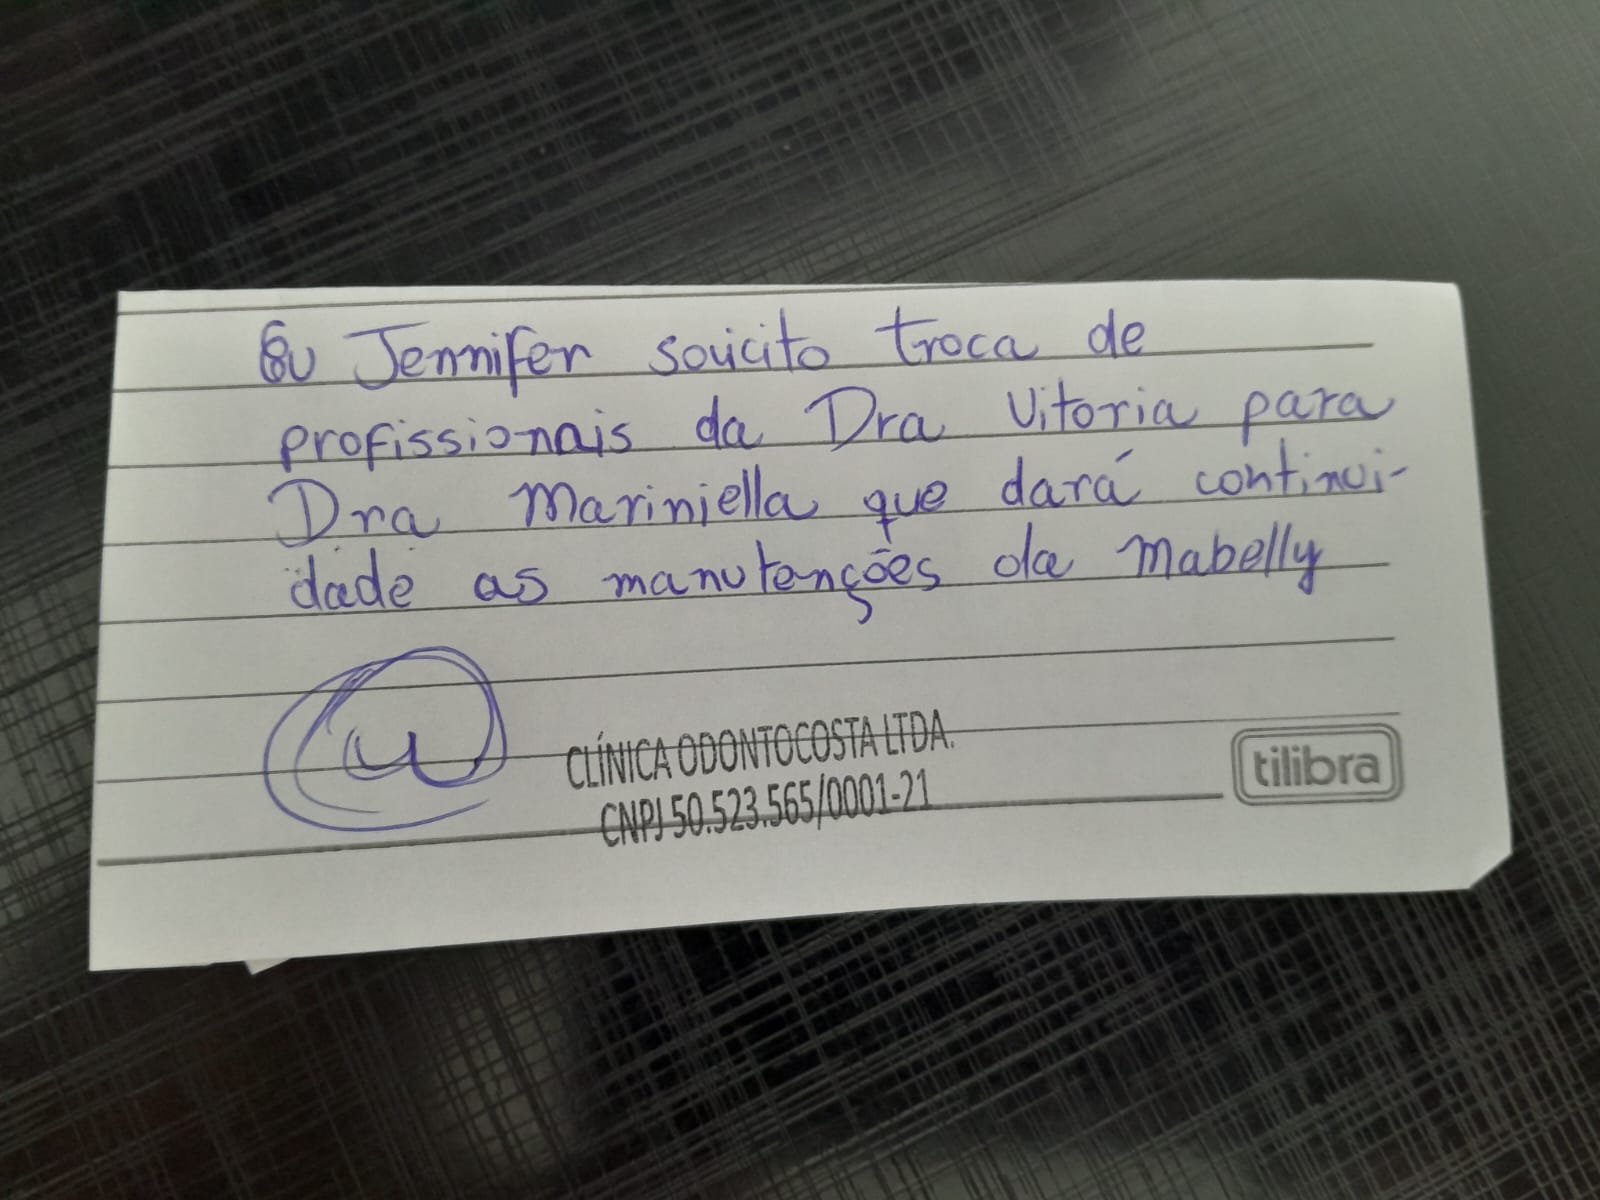 Eu Jennifer solicito troca de
profissionais da Dra Vitoria para
Dra Mariniella que dará continui-
dade as manutenções da Mabelly
CLÍNICA ODONTOCOSTA LTDA.
CNPJ 50.523.565/0001-21
tilibra